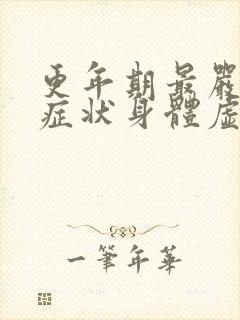 更年期最嚴
症状身體虛
一筆年華